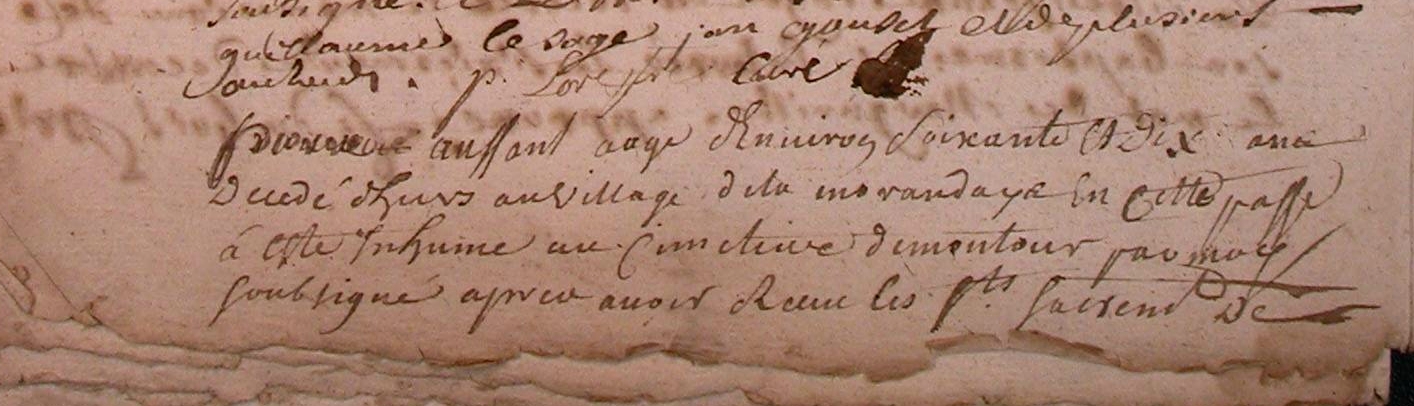 soubsigné. 
guillaume le sage jan gousel et de plusieurs
. p. curé
aussant aagé d'Enuiron Soixante et Dix ans
Decedé d'hiers au Village de la morandaye En Cette passe
à Esté Inhumé au Cimetiere de montour par moy
Soubsigné aprés auoir Receu les Sts. Sacrem De